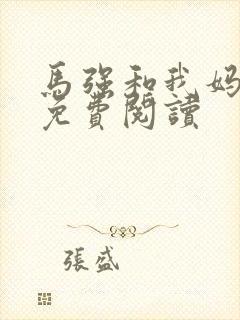 馬強和我媽
免費閱讀
張盛